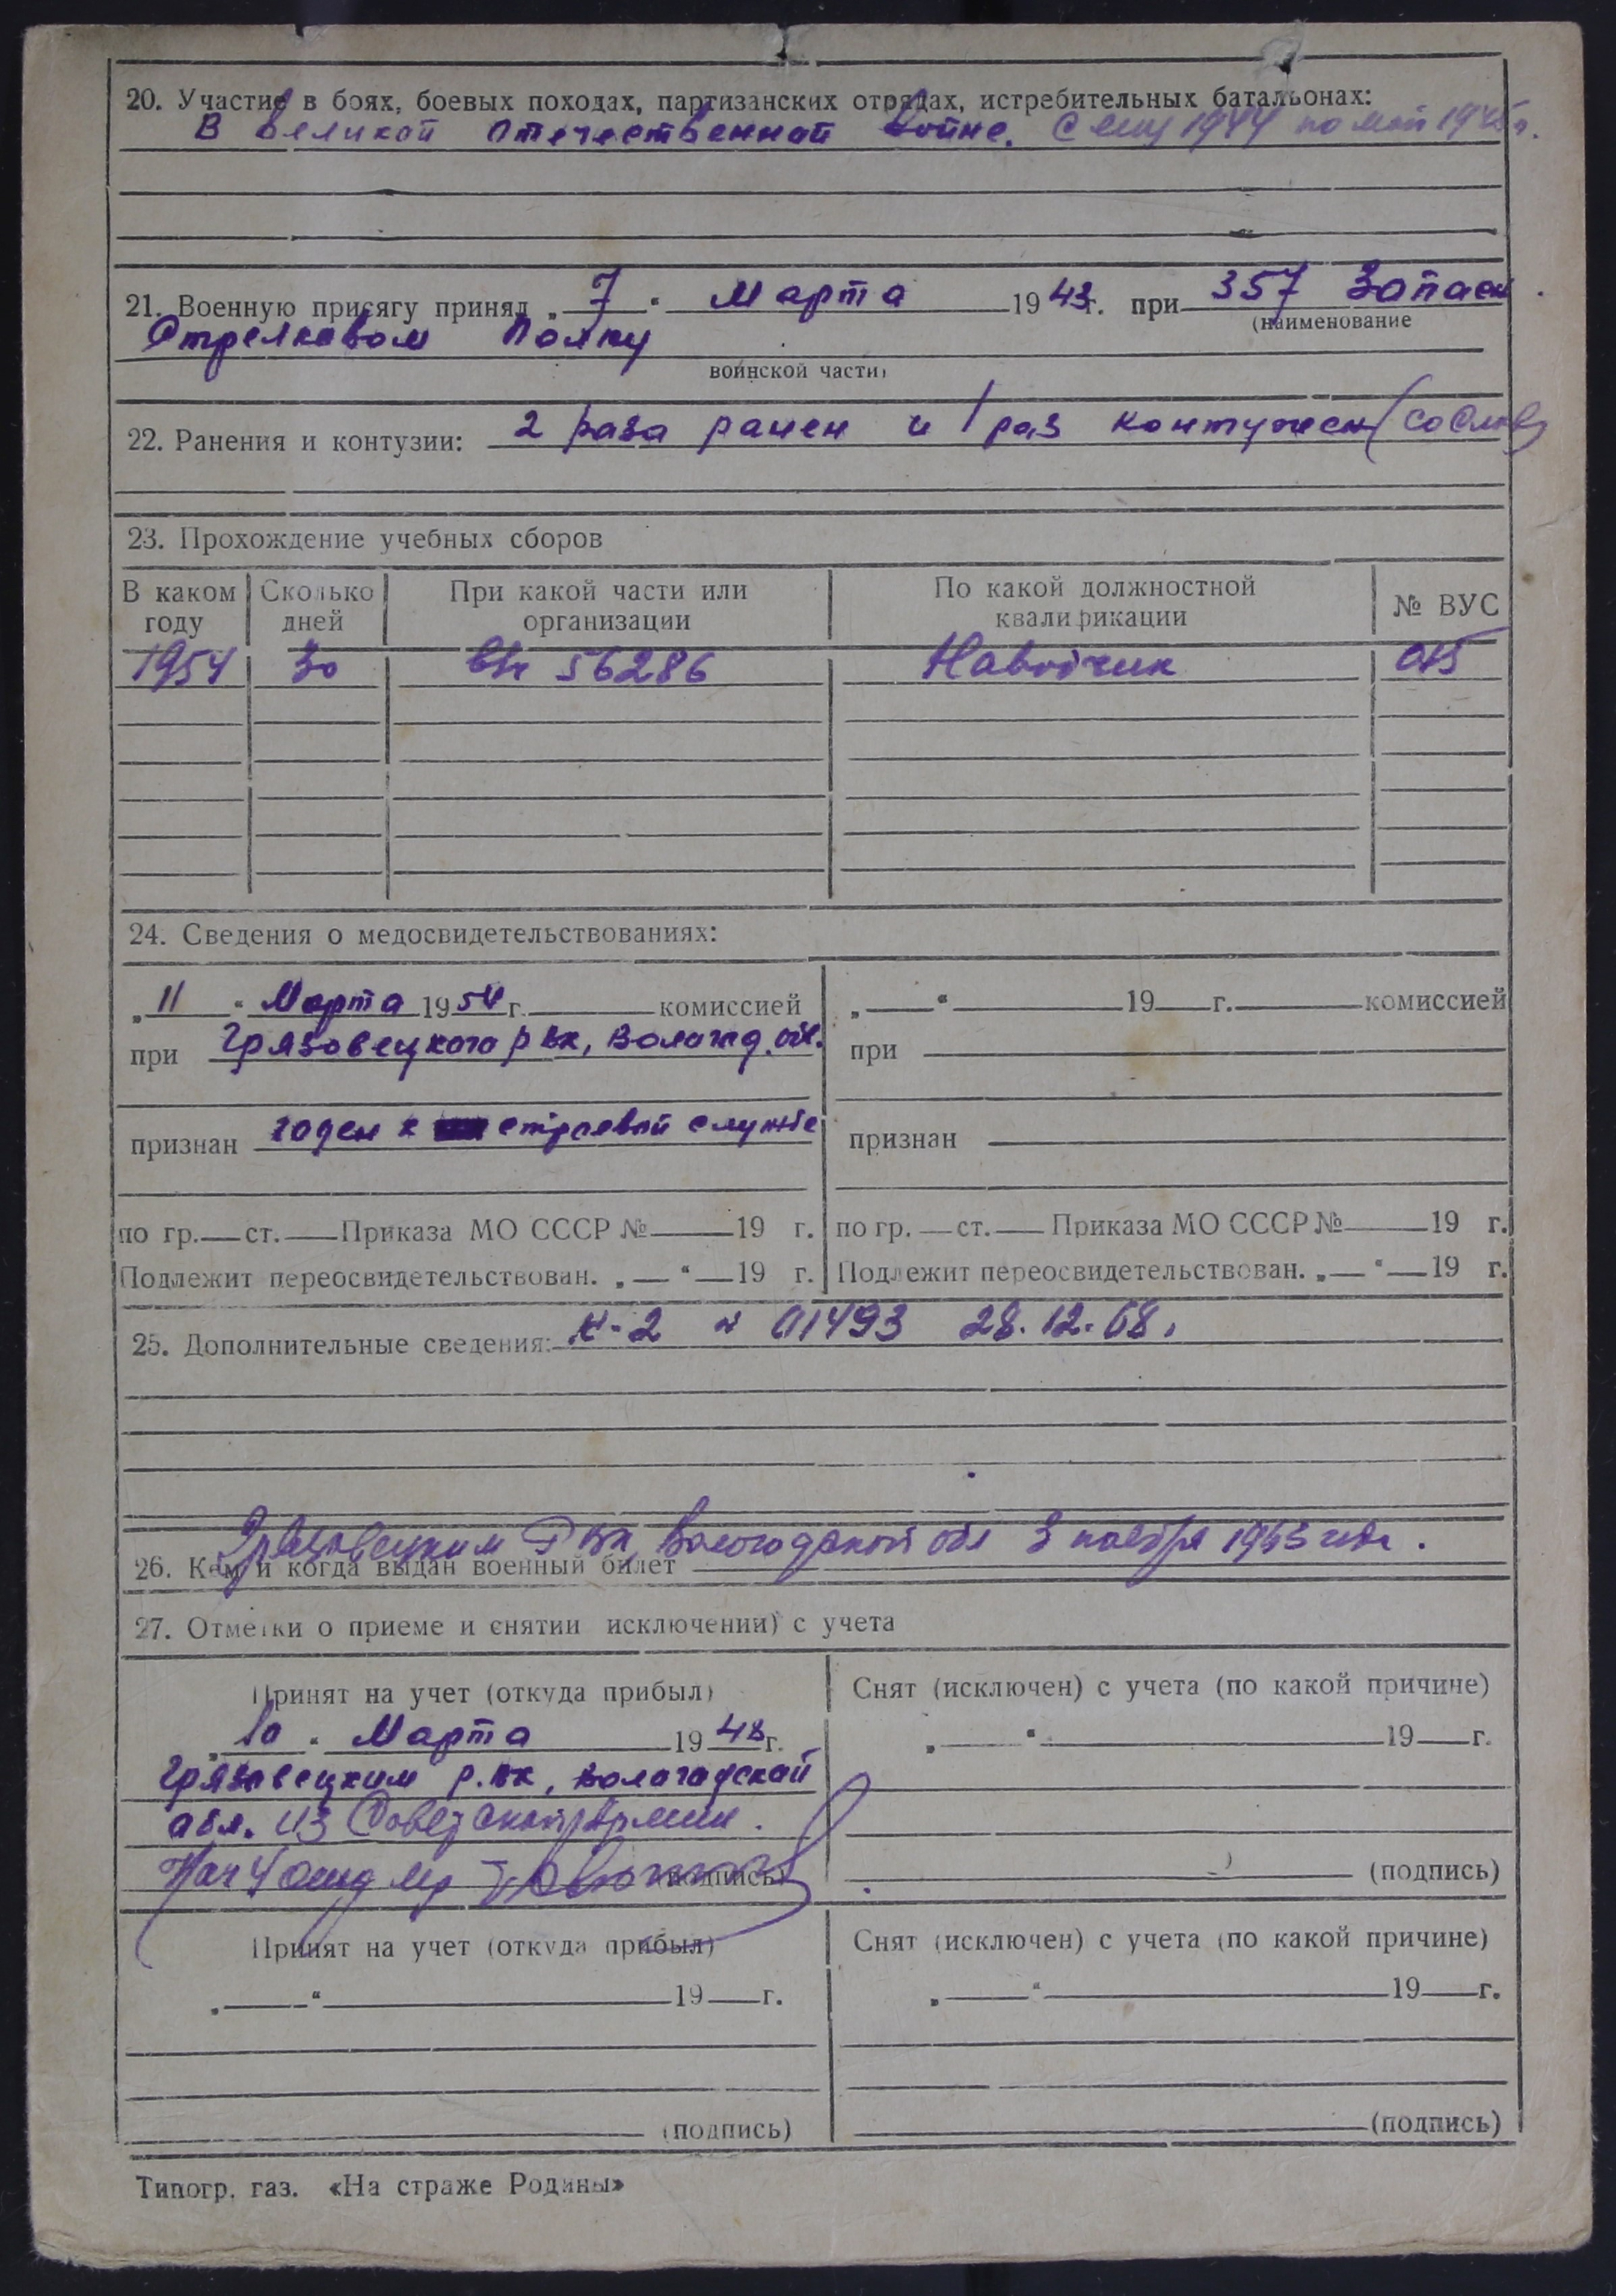 20. Участие в боях, боевых походах, партизанских отрядах, истребительных батальонах:
В Великой Отечественной Войне. с 1944 по май 1945 г.
21. Военную присягу принял „ 7 “ Марта 1943 г. при 357 Запасн
(наименование
Стрелковом Полку
воинской части)
22. Ранения и контузии: 2 раза ранен и 1 раз контужен (со слов)
23. Прохождение учебных сборов
В каком году Сколько дней При какой части или организации По какой должностной квалификации № ВУС
1954 30 в/ч 56286 Наводчик
24. Сведения о медосвидетельствованиях:
„ 11 “ Марта 1954 г. комиссией „ “ 19 г. комиссией
при Грязовецкого р вк, Вологод. обл. при
признан годен к строевой службе признан
по гр. ст. Приказа МО СССР № 19 г. по гр. ст. Приказа МО СССР № 19 г.
Подлежит переосвидетельствован. „ “ 19 г. Подлежит переосвидетельствован. „ “ 19 г.
25. Дополнительные сведения: 01493 28.12.68.
Грязовецким Р вк, Вологодской обл 3 ноября 1963 года.
26. Кем и когда выдан военный билет
27. Отметки о приеме и снятии исключении) с учета
Принят на учет (откуда прибыл) Снят (исключен) с учета (по какой причине)
„ 10 “ Марта 1948 г. „ “ 19 г.
Грязовецким р.вк, Вологодской
обл. из Советской Армии.
Нач 4 (подпись) (подпись)
Принят на учет (откуда прибыл) Снят (исключен) с учета (по какой причине)
„ “ 19 г. „ “ 19 г.
(подпись) (подпись)
Типогр. газ. «На страже Родины»